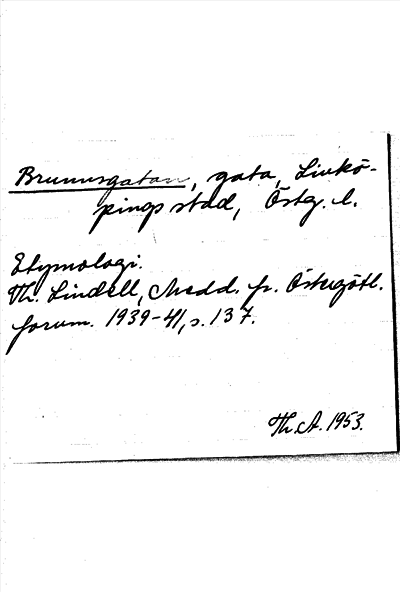 Brunnsgatan, gata, Linkö-
pings stad, Östg. l.
Etymologi.
Th. Lindell, Medd. fr. Östergötl.
fornm. 1939-41, s. 137.
Th. A. 1953.